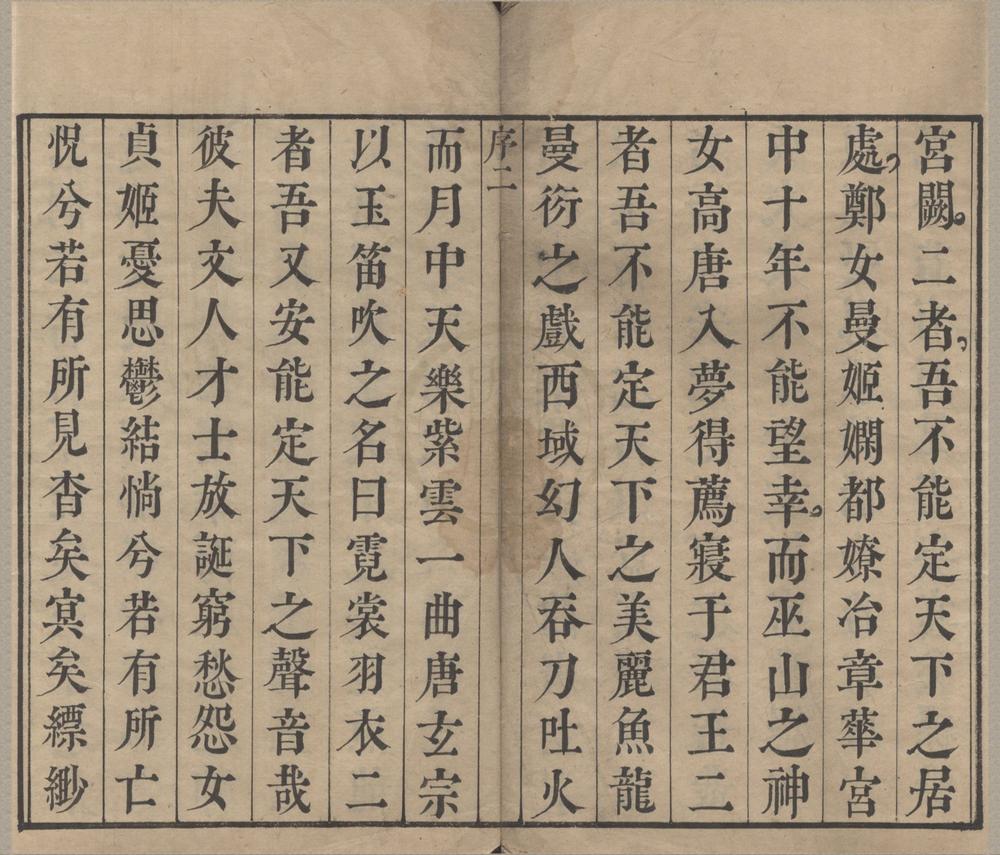 宮闕二者吾不能定天下之居
處鄭女曼姬嫻都嫽冶章華宮
中十年不能望幸而巫山之神
女高唐入夢得薦寢于君王二
者吾不能定天下之美麗魚龍
曼衍之戲西域幻人吞刀吐火
序二
而月中天樂紫雲一曲唐玄宗
以玉笛吹之名曰霓裳羽衣二
者吾又安能定天下之聲音哉
彼夫文人才士放誕窮愁怨女
貞姬憂思鬱結惝兮若有所亡
怳兮若有所見杳矣冥矣縹緲